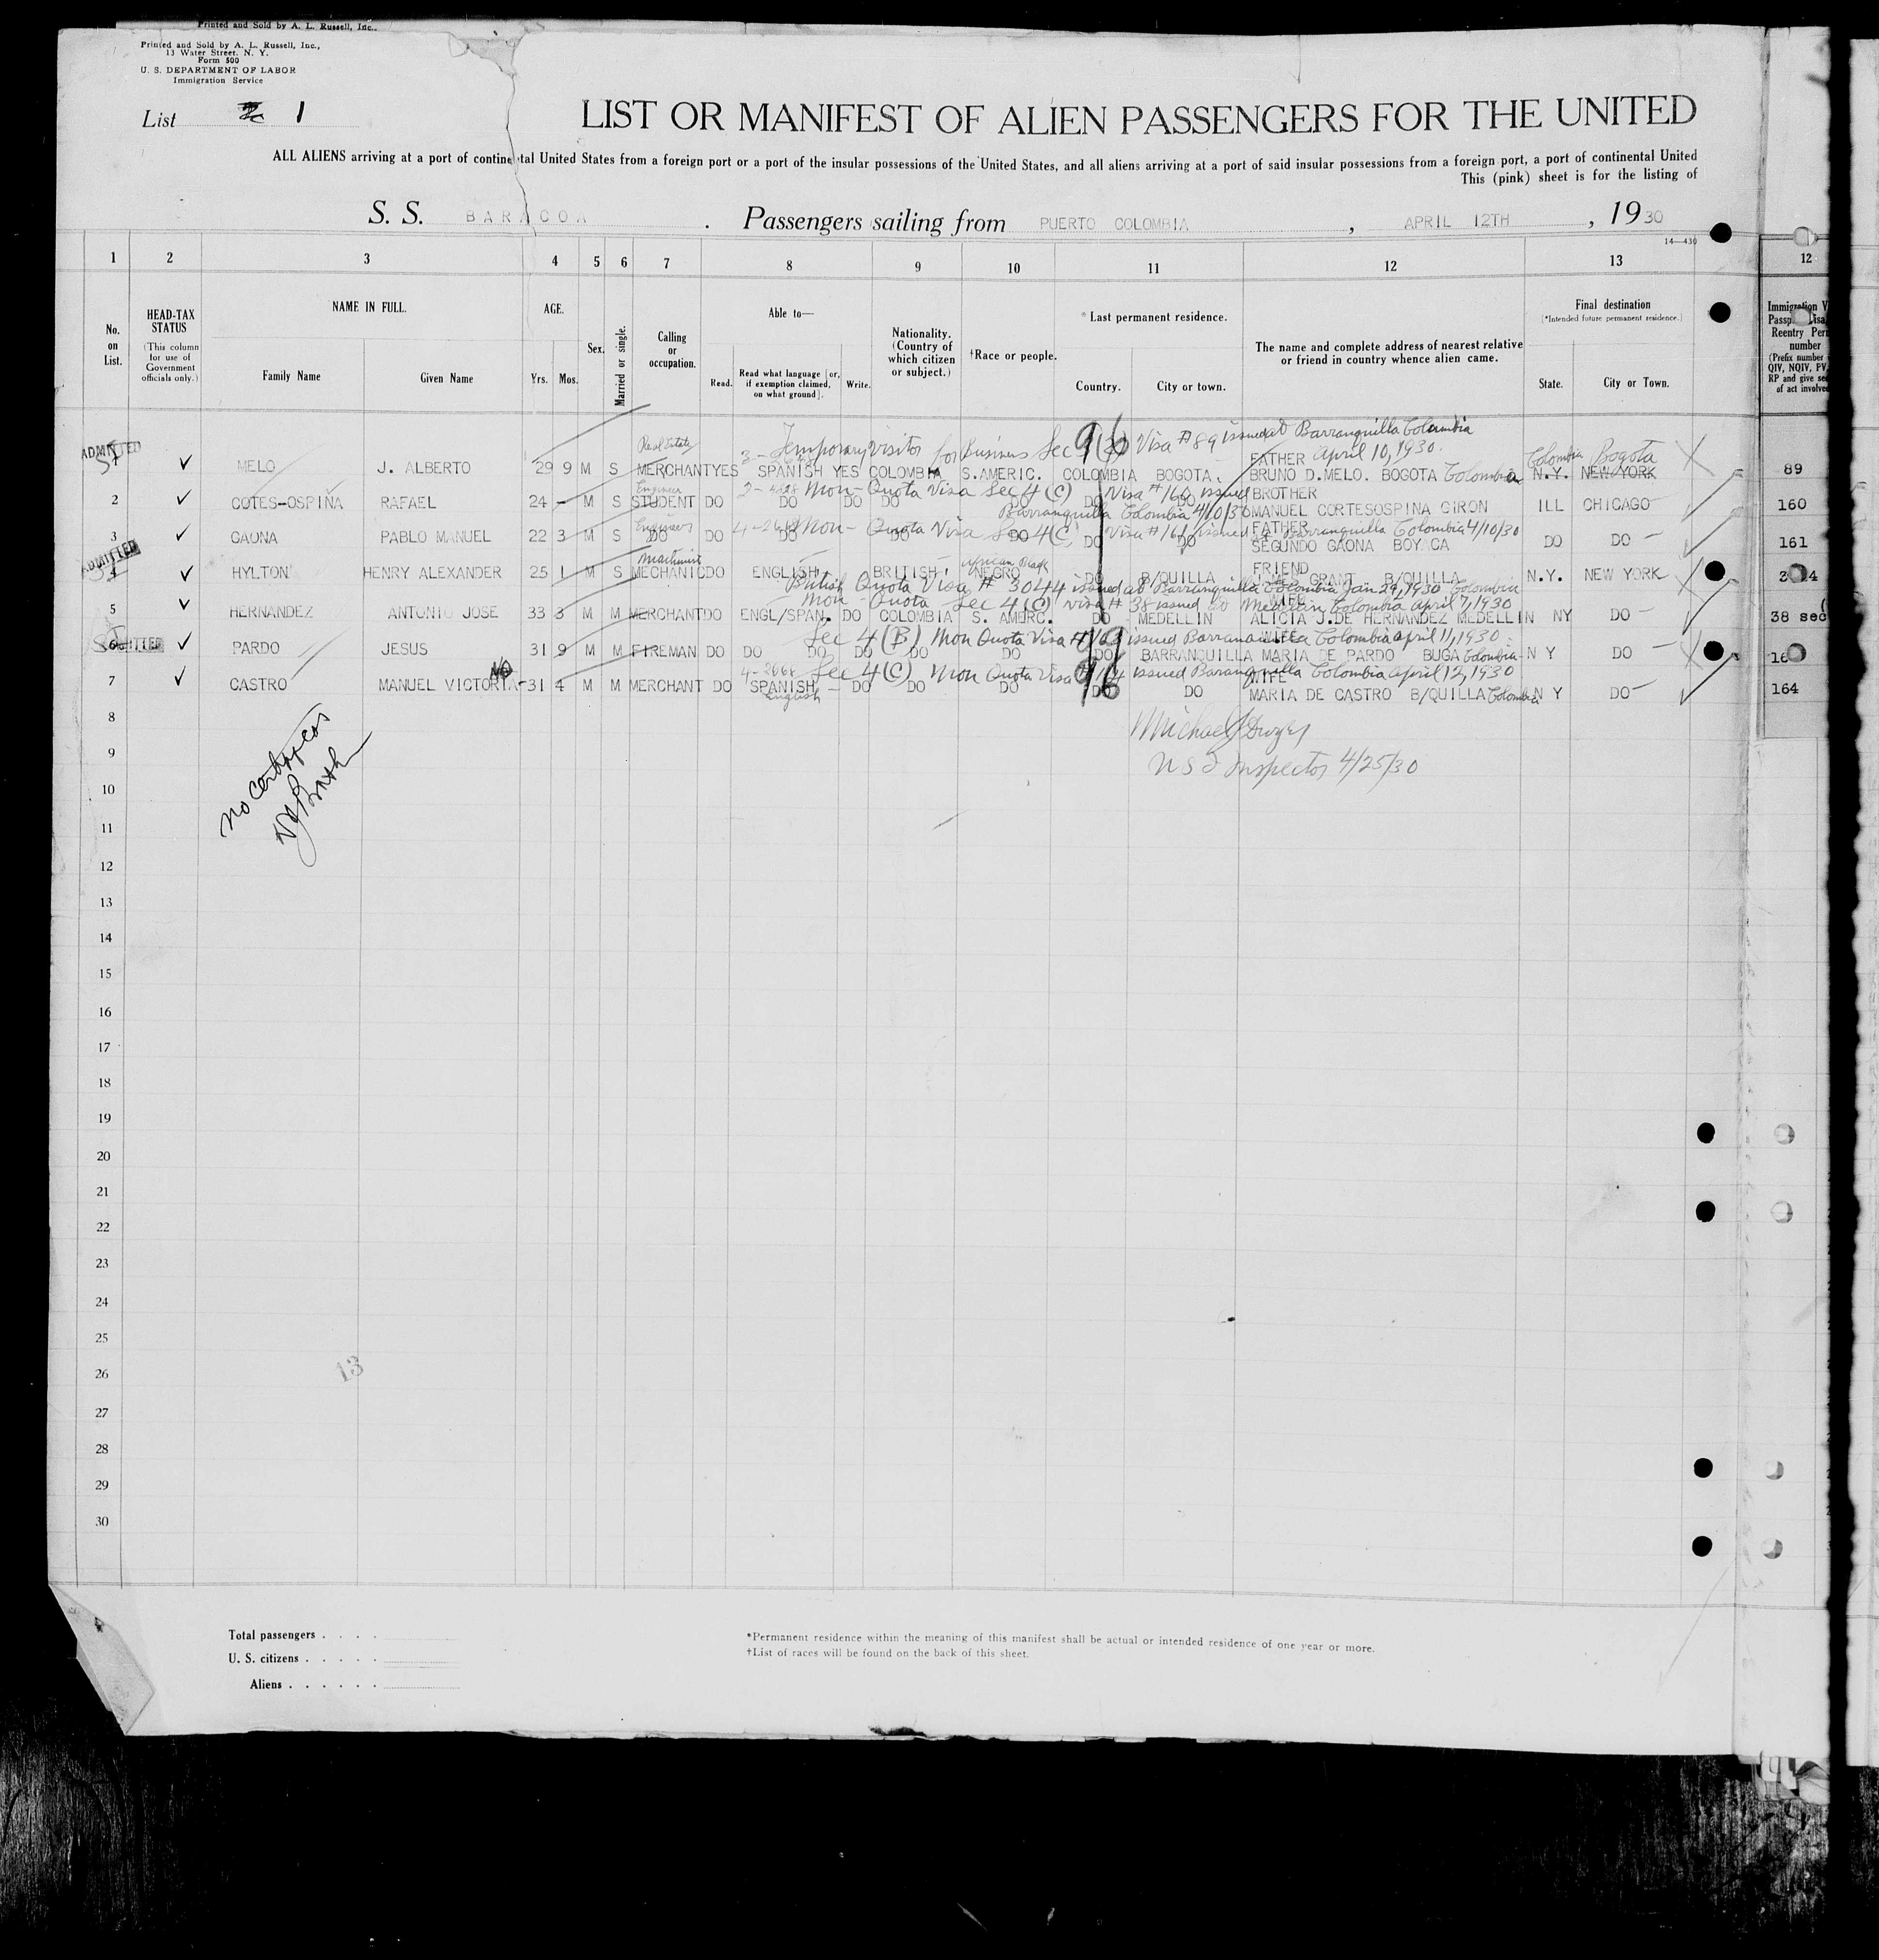 Printed and Sold by A. L. Russell, Inc.,
Printed and Sold by A. L. Russell, Inc.,
13 Water Street, N. Y.
Form 500
U. S. DEPARTMENT OF LABOR
Immigration Service
List 1
LIST OR MANIFEST OF ALIEN PASSENGERS FOR THE UNITED
ALL ALIENS arriving at a port of continental United States from a foreign port or a port of the insular possessions of the United States, and all aliens arriving at a port of said insular possessions from a foreign port, a port of continental United
This (pink) sheet is for the listing of
S. S. BARACOA . Passengers sailing from PUERTO COLOMBIA , APRIL 12TH , 1930
14—430
1 2 3 4 5 6 7 8 9 10 11 12 13 12
No. on List.
HEAD-TAX STATUS
(This column for use of Government officials only.)
NAME IN FULL.
Family Name Given Name
AGE.
Yrs. Mos.
Sex.
Married or single.
Calling or occupation.
Able to—
Read. Read what language [or, if exemption claimed, on what ground]. Write.
Nationality. (Country of which citizen or subject.)
†Race or people.
*Last permanent residence.
Country. City or town.
The name and complete address of nearest relative or friend in country whence alien came.
Final destination
(*Intended future permanent residence.)
State. City or Town.
Immigration V
Reentry Per
number
(Prefix number
QIV, NQIV, PV,
RP and give se
of act involve
ADMITTED
Real Estate
3 - Temporary visitor for Business Sec 3(2) Visa #89 issued at Barranquilla Colombia
April 10, 1930. Colombia Bogota
1 ✓ MELO J. ALBERTO 29 9 M S MERCHANT YES SPANISH YES COLOMBIA S.AMERIC. COLOMBIA BOGOTA. FATHER BRUNO D.MELO. BOGOTA Colombia N.Y. NEW YORK 89
Engineer
Non-Quota Visa Sec 4(C) Visa #160 issued
Barranquilla Colombia 4/10/30
2 ✓ COTES-OSPINA RAFAEL 24 – M S STUDENT DO DO DO DO DO DO DO BROTHER MANUEL CORTESOSPINA GIRON ILL CHICAGO 160
Engineer
4-2668 Non-Quota Visa Sec 4(C) Visa #161 issued at Barranquilla Colombia 4/10/30
3 ✓ GAONA PABLO MANUEL 22 3 M S DO DO DO DO DO DO DO FATHER SEGUNDO GAONA BOYACA DO DO 161
ADMITTED
Machinist
African Black
4 ✓ HYLTON HENRY ALEXANDER 25 1 M S MECHANIC DO ENGLISH BRITISH NEGRO DO B/QUILLA FRIEND GRANT B/QUILLA N.Y. NEW YORK
British Quota Visa # 3044 issued at Barranquilla Colombia Jan 29, 1930 Colombia
Non-Quota Sec 4(C) Visa # 38 issued at Medellin Colombia April 7, 1930
5 ✓ HERNANDEZ ANTONIO JOSE 33 3 M M MERCHANT DO ENGL/SPAN. DO COLOMBIA S. AMERC. DO MEDELLIN WIFE ALICIA J.DE HERNANDEZ MEDELLIN NY DO 38 sec
Sec 4(B) Non Quota Visa issued Barranquilla Colombia April 11, 1930
6 ✓ PARDO JESUS 31 9 M M FIREMAN DO DO DO DO DO DO BARRANQUILLA WIFE MARIA DE PARDO BUGA Colombia N Y DO
4-2668 Sec 4(C) Non Quota Visa issued Barranquilla Colombia April 12, 1930
7 ✓ CASTRO MANUEL VICTORIA 31 4 M M MERCHANT DO SPANISH – DO DO DO DO DO WIFE MARIA DE CASTRO B/QUILLA Colombia N Y DO 164
English
8
Michael J Dwyer
9
U S I Inspector 4/25/30
10
11
12
13
14
15
16
17
18
19
20
21
22
23
24
25
26
13
27
28
29
30
Total passengers . . . .
U. S. citizens . . . . .
Aliens . . . . . .
*Permanent residence within the meaning of this manifest shall be actual or intended residence of one year or more.
†List of races will be found on the back of this sheet.